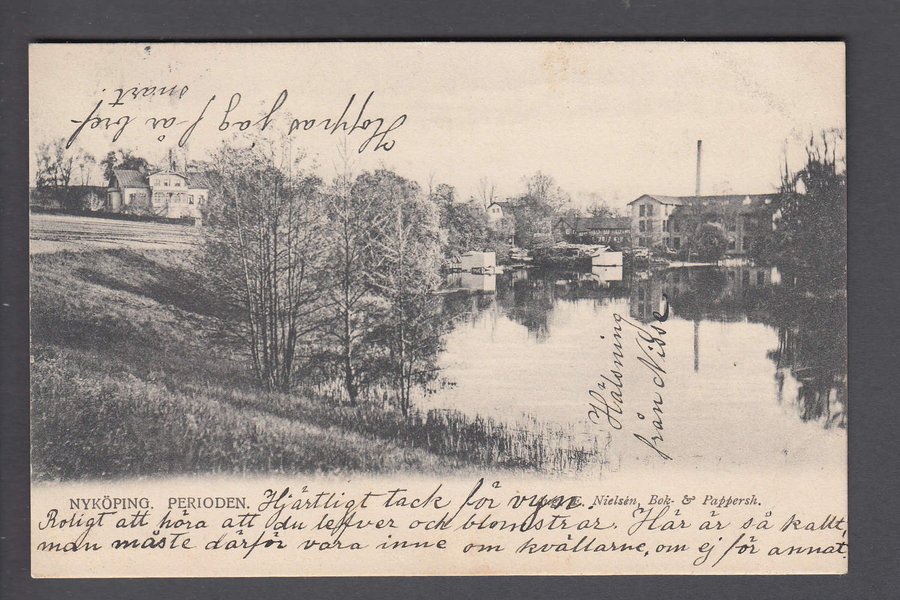 Hoppas jag få bref-
snart!
Hälsning
från Nisse
NYKÖPING. PERIODEN. Hjärtligt tack för vyn. E. Nielsén, Bok- & Pappersh.
Roligt att höra att du lefver och blomstrar. Här är så kallt,
man måste därför vara inne om kvällarne, om ej för annat.